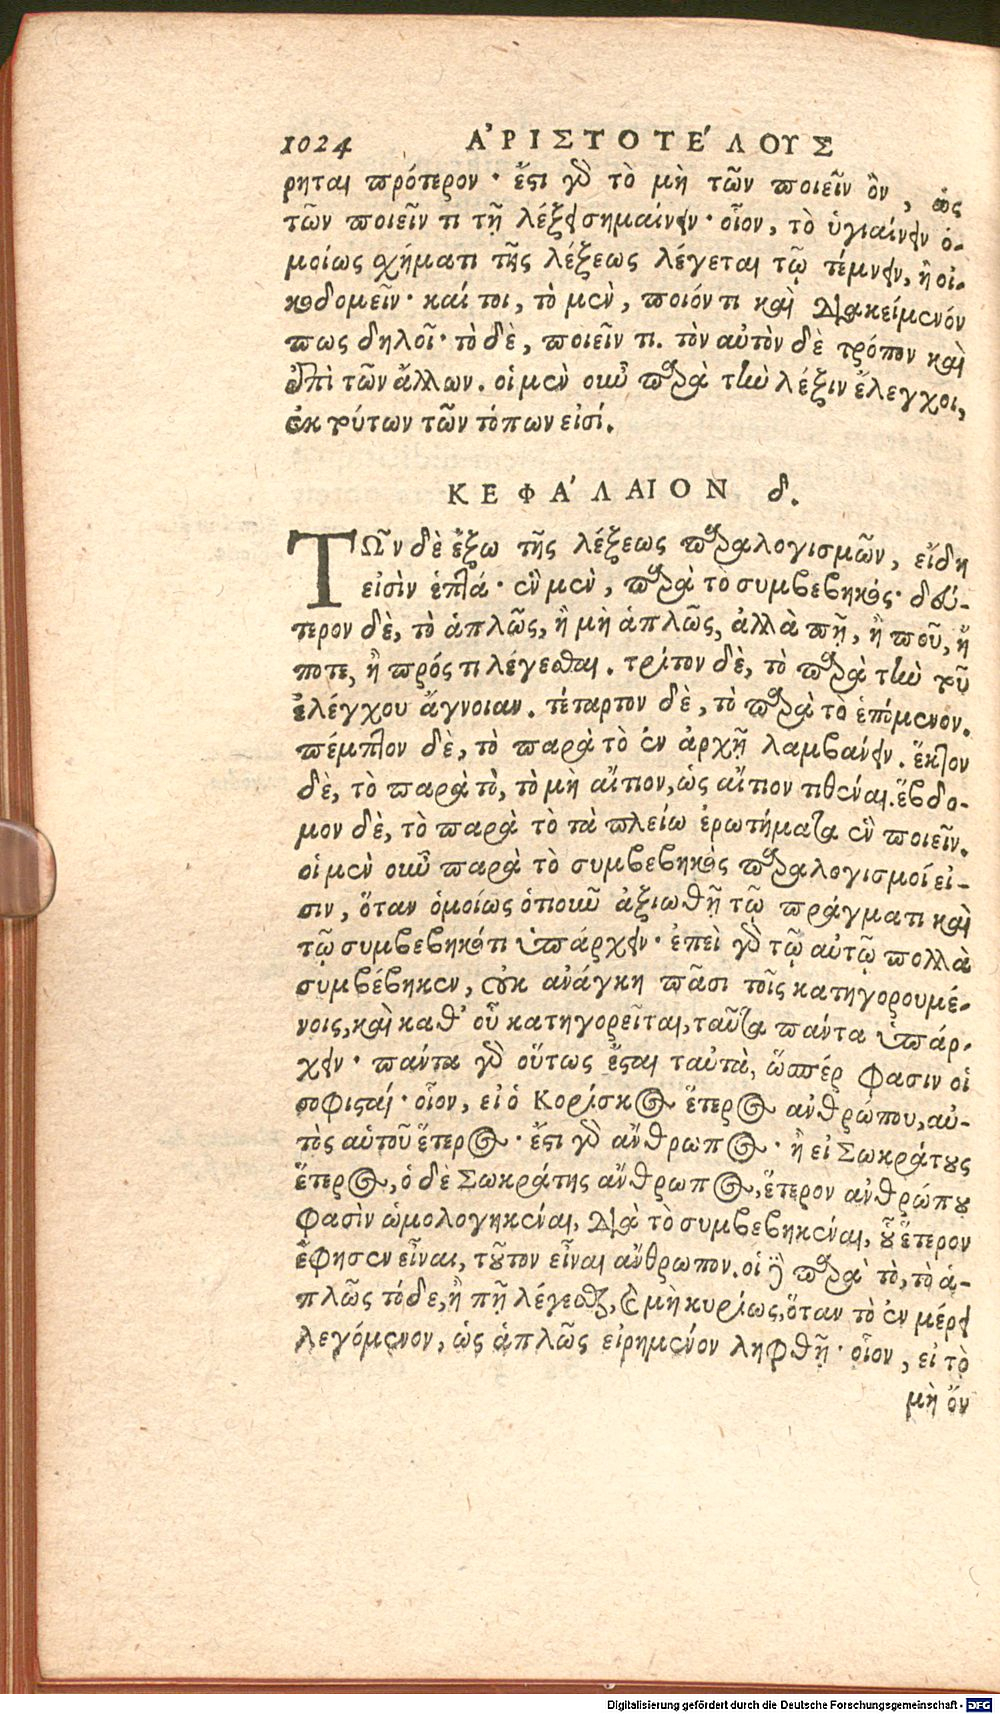 1024 ἈΡΙΣΤΟΤΈΛΟΥΣ
ρηται πρότερον· ἔστι γὸ τὸ μὴ τῶν ποιεῖν ὂν, ὡς
τῶν ποιεῖν τι τῇ λέξει σημαίνειν· οἷον, τὸ ὑγιαίνειν ὁ-
μοίως σχήματι τῆς λέξεως λέγεται τῷ τέμνειν, ἢ οἰ-
κοδομεῖν· καί τοι, τὸ μὲν, ποιόν τι καὶ διακείμενόν
πως δηλοῖ· τὸ δὲ, ποιεῖν τι. τὸν αὐτὸν δὲ τρόπον καὶ
ἐπὶ τῶν ἄλλων. οἱ μὲν οὖν παρὰ τὴν λέξιν ἔλεγχοι,
ἐκ τούτων τῶν τόπων εἰσί.
ΚΕΦΆΛΑΙΟΝ δ.
ΤΩ͂ν δὲ ἔξω τῆς λέξεως παραλογισμῶν, εἴδη
εἰσὶν ἑπτά· ἓν μὲν, παρὰ τὸ συμβεβηκός· δεύ-
τερον δὲ, τὸ ἁπλῶς, ἢ μὴ ἁπλῶς, ἀλλὰ πῇ, ἢ ποῦ, ἤ
ποτε, ἢ πρός τι λέγεσθαι. τρίτον δὲ, τὸ παρὰ τὴν τοῦ
ἐλέγχου ἄγνοιαν. τέταρτον δὲ, τὸ παρὰ τὸ ἑπόμενον.
πέμπτον δὲ, τὸ παρὰ τὸ ἐν ἀρχῇ λαμβάνειν. ἕκτον
δὲ, τὸ παρὰ τὸ, τὸ μὴ αἴτιον, ὡς αἴτιον τιθέναι. ἕβδο-
μον δὲ, τὸ παρὰ τὸ τὰ πλείω ἐρωτήματα ἓν ποιεῖν.
οἱ μὲν οὖν παρὰ τὸ συμβεβηκὸς παραλογισμοί εἰ-
σιν, ὅταν ὁμοίως ὁτιοῦν ἀξιωθῇ τῷ πράγματι καὶ
τῷ συμβεβηκότι ὑπάρχειν· ἐπεὶ γὸ τῷ αὐτῷ πολλὰ
συμβέβηκεν, οὐκ ἀνάγκη πᾶσι τοῖς κατηγορουμέ-
νοις, καὶ καθ' οὗ κατηγορεῖται, ταῦτα πάντα ὑπάρ-
χειν· πάντα γὸ οὕτως ἔσται ταὐτὰ, ὥσπέρ φασιν οἱ
σοφισταί· οἷον, εἰ ὁ Κορίσκος ἕτερος ἀνθρώπου, αὐ-
τὸς αὑτοῦ ἕτερος· ἔστι γὸ ἄνθρωπος· ἢ εἰ Σωκράτους
ἕτερος, ὁ δὲ Σωκράτης ἄνθρωπος, ἕτερον ἀνθρώπου
φασὶν ὡμολογηκέναι, διὰ τὸ συμβεβηκέναι, οὗ ἕτερον
ἔφησεν εἶναι, τοῦτον εἶναι ἄνθρωπον. οἱ δὲ παρὰ τὸ, τὸ ἁ-
πλῶς τόδε, ἢ πῇ λέγεσθαι, καὶ μὴ κυρίως, ὅταν τὸ ἐν μέρει
λεγόμενον, ὡς ἁπλῶς εἰρημένον ληφθῇ· οἷον, εἰ τὸ
μὴ ὄν
Digitalisierung gefördert durch die Deutsche Forschungsgemeinschaft - DFG